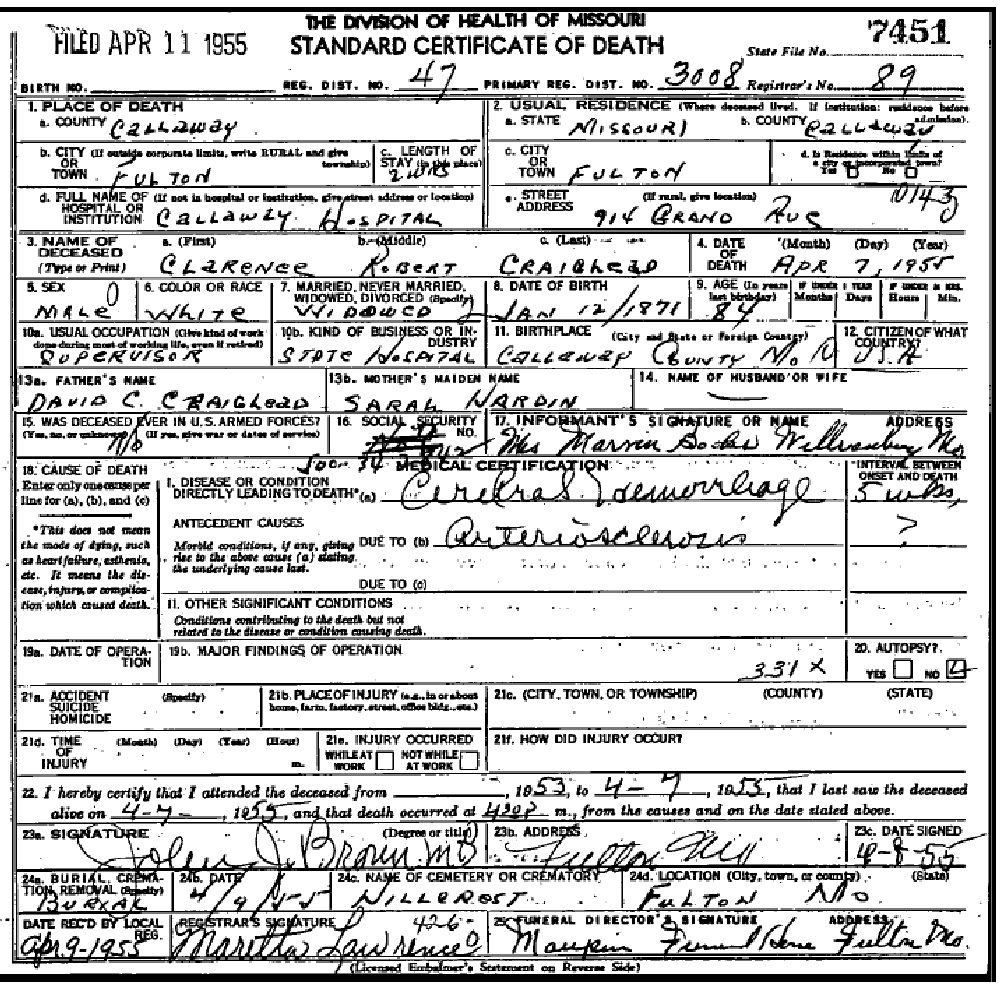 THE DIVISION OF HEALTH OF MISSOURI
FILED APR 11 1955 STANDARD CERTIFICATE OF DEATH State File No. 7451
BIRTH NO. REG. DIST. NO. 47 PRIMARY REG. DIST. NO. 3008 Registrar's No. 89
1. PLACE OF DEATH
a. COUNTY Callaway
2. USUAL RESIDENCE (Where deceased lived. If institution: residence before admission).
a. STATE Missouri b. COUNTY Callaway
b. CITY (If outside corporate limits, write RURAL and give township)
OR
TOWN Fulton
c. LENGTH OF
STAY (in this place)
c. CITY
OR
TOWN Fulton
d. Is Residence within limits of
a city or incorporated town?
Yes No
d. FULL NAME OF (If not in hospital or institution, give street address or location)
HOSPITAL OR
INSTITUTION Callaway Hospital
e. STREET (If rural, give location)
ADDRESS 914 Grand Ave
3. NAME OF
DECEASED
(Type or Print)
a. (First) b. (Middle) c. (Last)
Clarence Robert Craighead
4. DATE (Month) (Day) (Year)
OF
DEATH Apr 7, 1955
5. SEX
Male
6. COLOR OR RACE
White
7. MARRIED, NEVER MARRIED,
WIDOWED, DIVORCED (Specify)
Widowed
8. DATE OF BIRTH
Jan 12/1871
9. AGE (In years
last birthday)
84
IF UNDER 1 YEAR
Months Days
IF UNDER 24 HRS.
Hours Min.
10a. USUAL OCCUPATION (Give kind of work
done during most of working life, even if retired)
Supervisor
10b. KIND OF BUSINESS OR IN-
DUSTRY
State Hospital
11. BIRTHPLACE (City and State or Foreign Country)
Callaway County Mo.
12. CITIZEN OF WHAT
COUNTRY?
U.S.A
13a. FATHER'S NAME
David C. Craighead
13b. MOTHER'S MAIDEN NAME
Sarah Hardin
14. NAME OF HUSBAND OR WIFE
15. WAS DECEASED EVER IN U.S. ARMED FORCES?
(Yes, no, or unknown) (If yes, give war or dates of service)
No
16. SOCIAL SECURITY
NO.
17. INFORMANT'S SIGNATURE OR NAME ADDRESS
Mrs Marvin Williamsburg Mo
18. CAUSE OF DEATH
Enter only one cause per
line for (a), (b), and (c)
*This does not mean
the mode of dying, such
as heart failure, asthenia,
etc. It means the dis-
ease, injury, or complica-
tion which caused death.
MEDICAL CERTIFICATION
I. DISEASE OR CONDITION
DIRECTLY LEADING TO DEATH*(a) Cerebral Hemorrhage
INTERVAL BETWEEN
ONSET AND DEATH
5 wks,
ANTECEDENT CAUSES
Morbid conditions, if any, giving
rise to the above cause (a) stating
the underlying cause last.
DUE TO (b) Arteriosclerosis ?
DUE TO (c)
II. OTHER SIGNIFICANT CONDITIONS
Conditions contributing to the death but not
related to the disease or condition causing death.
19a. DATE OF OPERA-
TION
19b. MAJOR FINDINGS OF OPERATION
331X
20. AUTOPSY?
YES NO
21a. ACCIDENT (Specify)
SUICIDE
HOMICIDE
21b. PLACE OF INJURY (e.g., in or about
home, farm, factory, street, office bldg., etc.)
21c. (CITY, TOWN, OR TOWNSHIP) (COUNTY) (STATE)
21d. TIME (Month) (Day) (Year) (Hour)
OF
INJURY m.
21e. INJURY OCCURRED
WHILE AT WORK NOT WHILE AT WORK
21f. HOW DID INJURY OCCUR?
22. I hereby certify that I attended the deceased from , 1953, to 4-7, 1955, that I last saw the deceased
alive on 4-7-, 1955, and that death occurred at m., from the causes and on the date stated above.
23a. SIGNATURE (Degree or title)
John J Brown MD
23b. ADDRESS
Fulton Mo
23c. DATE SIGNED
4-8-55
24a. BURIAL, CREMA-
TION, REMOVAL (Specify)
Burial
24b. DATE
4/9/55
24c. NAME OF CEMETERY OR CREMATORY
Hillcrest
24d. LOCATION (City, town, or county) (State)
Fulton Mo
DATE REC'D BY LOCAL
REG.
Apr 9-1955
REGISTRAR'S SIGNATURE 426
Maretha Lawrence
25. FUNERAL DIRECTOR'S SIGNATURE ADDRESS
Maupin Funeral Home Fulton Mo.
(Licensed Embalmer's Statement on Reverse Side)